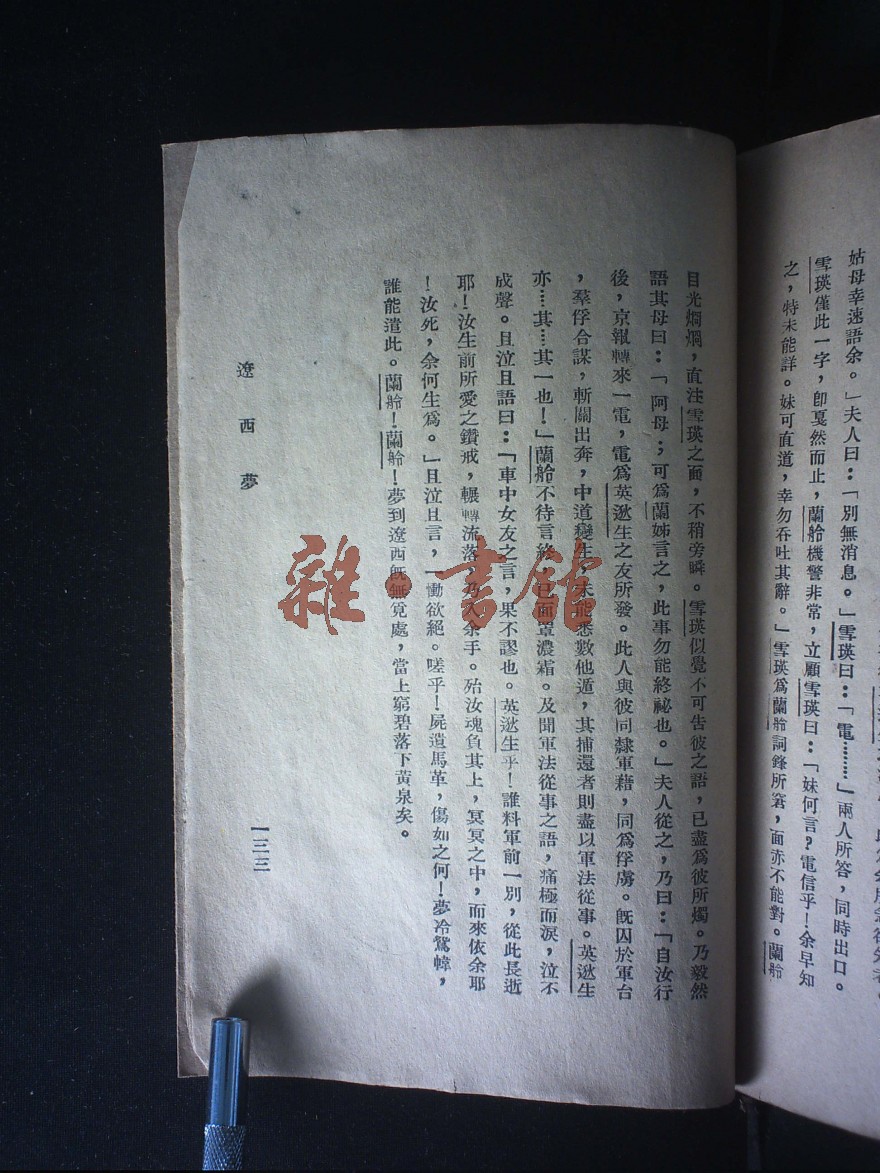 姑母幸速語余。」夫人曰：「別無消息。」雪瑛曰：「電………」兩人所答，同時出口。
雪瑛僅此一字，卽戛然而止，蘭舲機警非常，立顧雪瑛曰：「妹何言？電信乎！余早知
之，特未能詳。妹可直道，幸勿吞吐其辭。」雪瑛爲蘭舲詞鋒所窘，面亦不能對。蘭舲
目光燗燗，直注雪瑛之面，不稍旁瞬。雪瑛似覺不可告彼之語，已盡爲彼所燭。乃毅然
語其母曰：「阿母；可爲蘭姊言之，此事勿能終祕也。」夫人從之，乃曰：「自汝行
後，京報轉來一電，電爲英逖生之友所發。此人與彼同隸軍藉，同爲俘虜。旣囚於軍台
，羣俘合謀，斬關出奔，中道變生，未能悉數他遁，其捕還者則盡以軍法從事。英逖生
亦……其……其一也！」蘭舲不待言終，已面罩濃霜。及聞軍法從事之語，痛極而淚，泣不
成聲。且泣且語曰：「車中女友之言，果不謬也。英逖生乎！誰料軍前一別，從此長逝
耶！汝生前所愛之鑽戒，輾轉流落，乃入余手。殆汝魂負其上，冥冥之中，而來依余耶
！汝死，余何生爲。」且泣且言，一慟欲絕。嗟乎！屍遺馬革，傷如之何！夢冷鴛幃，
誰能遣此。蘭舲！蘭舲！夢到遼西旣無覓處，當上窮碧落下黄泉矣。
遼西夢
一三三
雜·書館